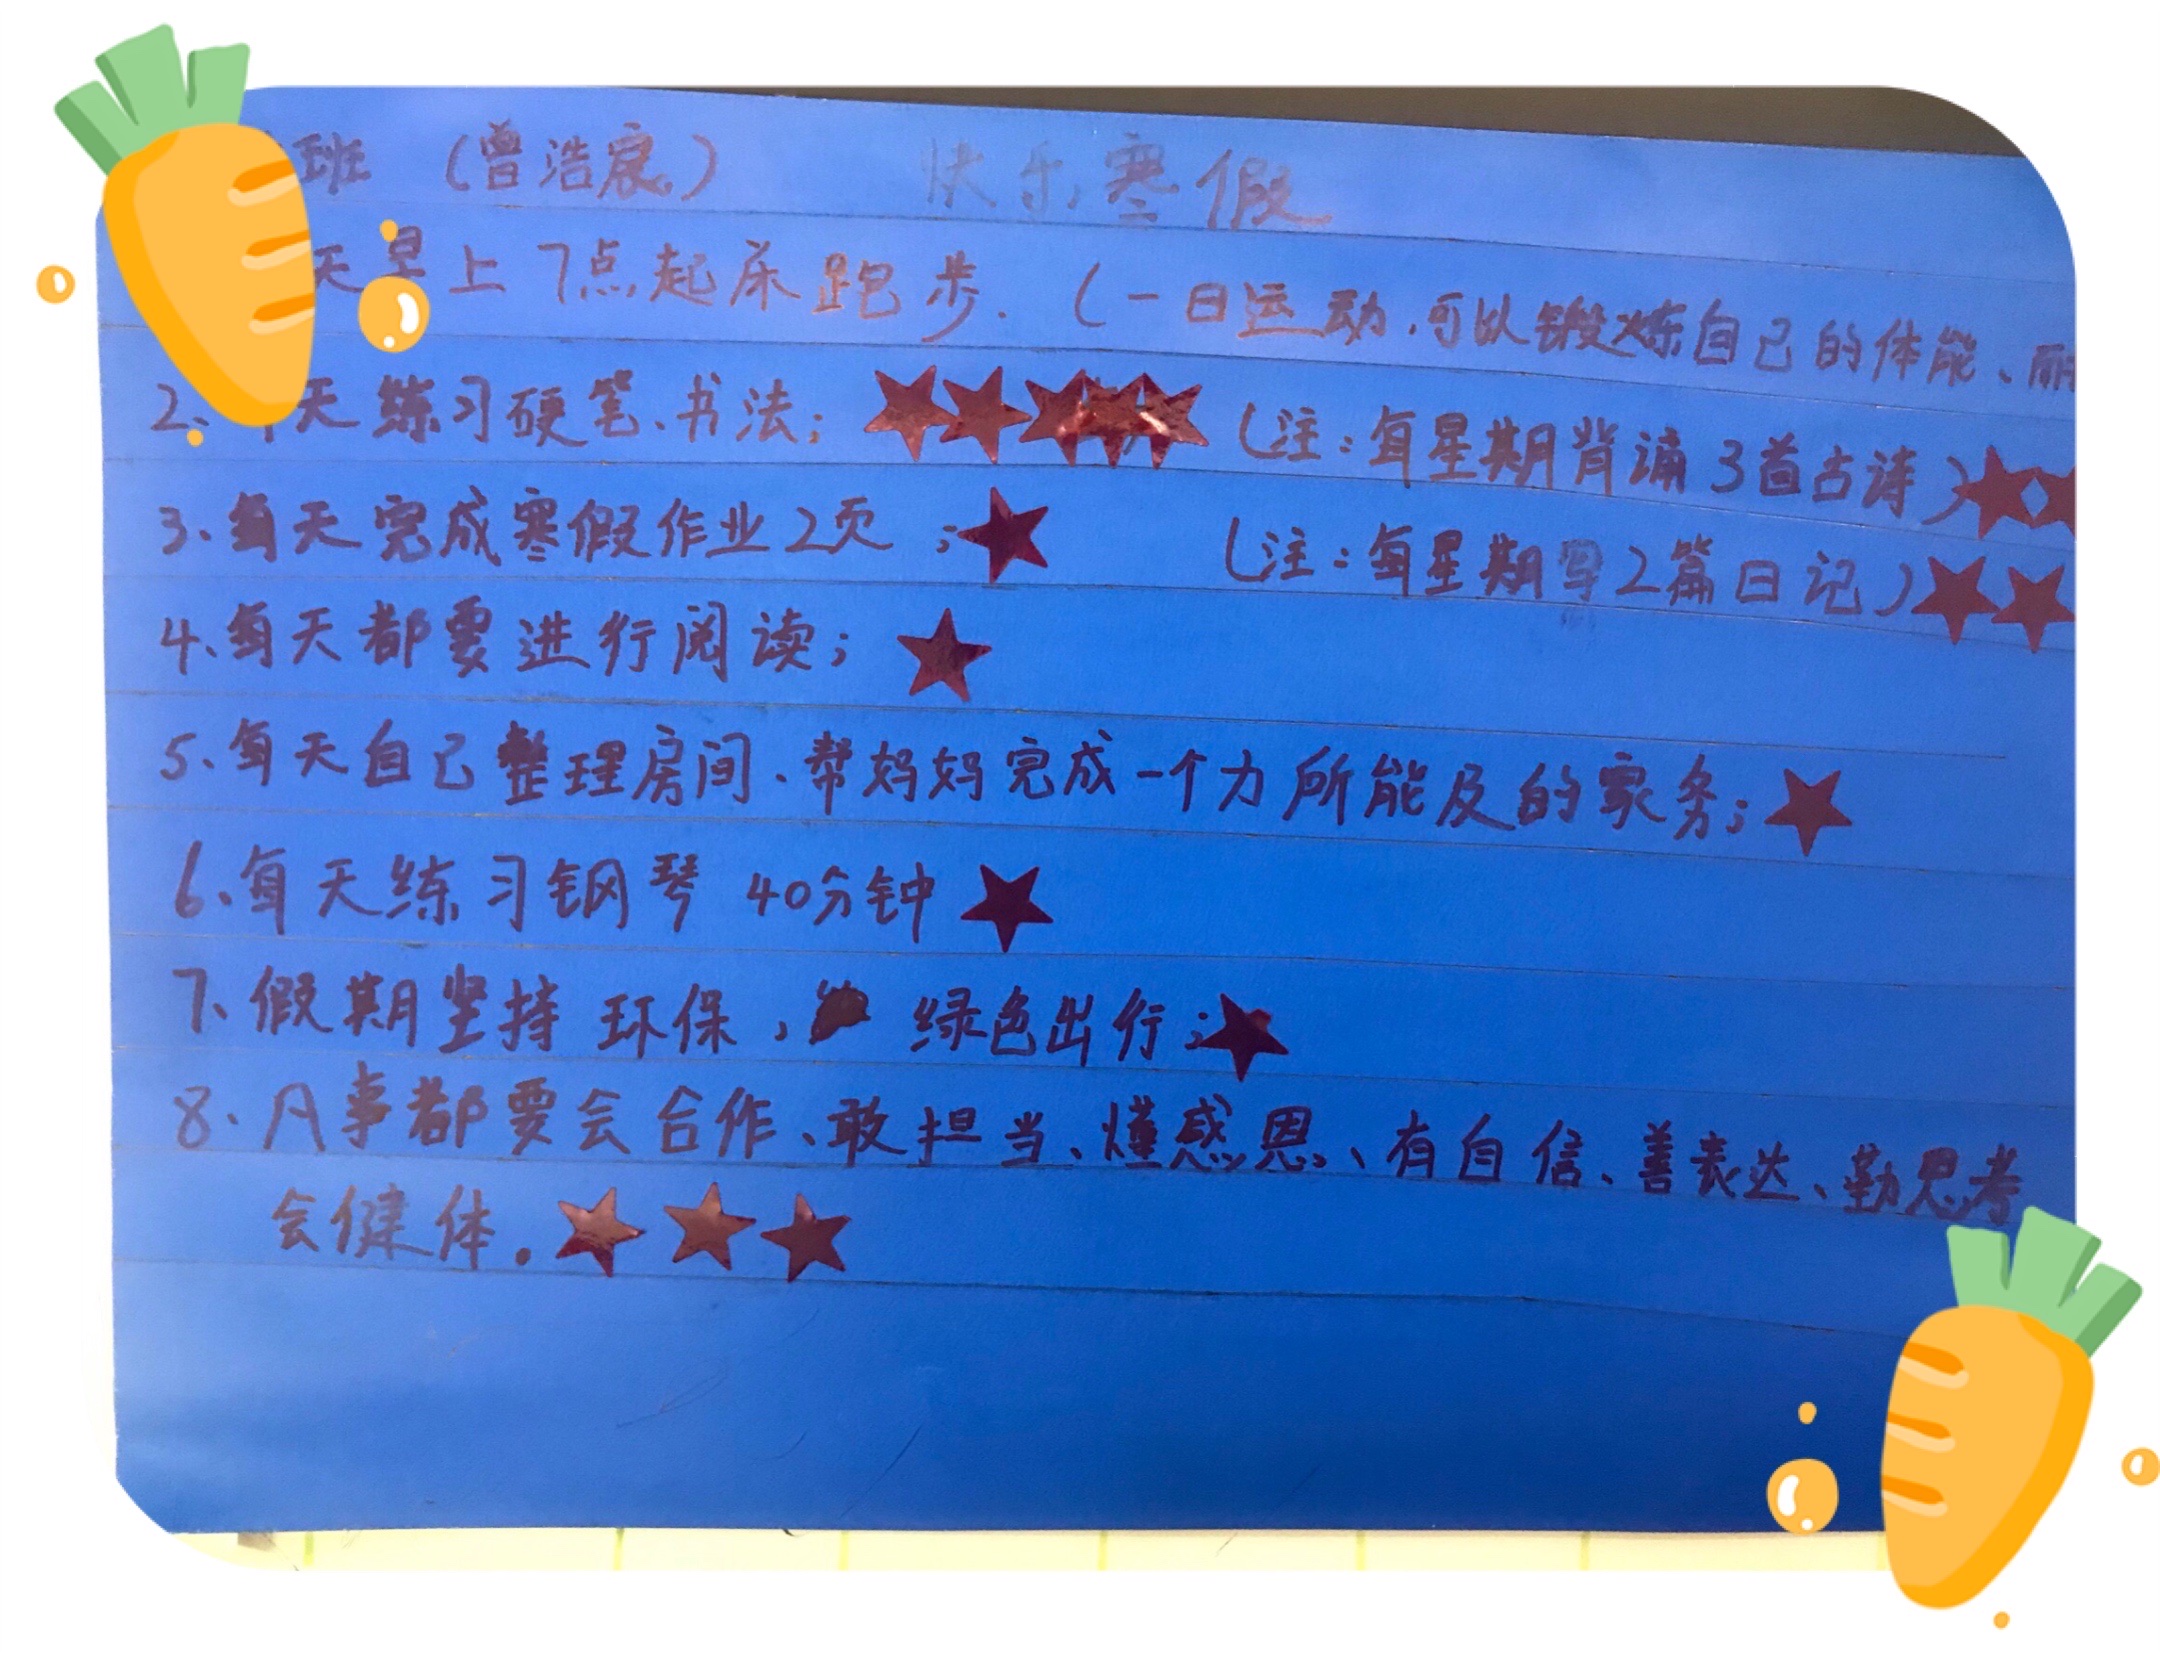 班 （曾浩宸） 快乐寒假
天早上7点起床跑步.（一日运动,可以锻炼自己的体能、
2、天练习硬笔、书法；（注：每星期背诵3首古诗）
3、每天完成寒假作业2页；（注：每星期写2篇日记）
4、每天都要进行阅读；
5、每天自己整理房间、帮妈妈完成一个力所能及的家务；
6、每天练习钢琴 40分钟
7、假期坚持 环保，绿色出行；
8、凡事都要会合作、敢担当、懂感恩、有自信、善表达、勤思考
会健体.